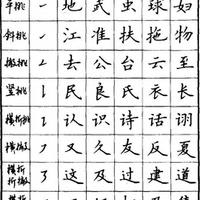 平挑 ㇀ 地 武 虫 球 妇
斜挑 ㇀ 江 准 扶 拖 物
撇挑 ㇜ 去 公 台 云 至
竖挑 ㇙ 民 良 民 衣 长
横折挑 ㇊ 认 识 诗 话 诩
横撇 ㇇ 又 久 友 反 夏
横折折撇 ㇋ 这 及 过 建 道
横折